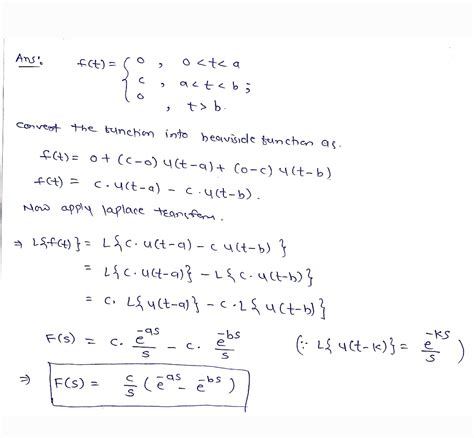 Ans: f(t) = { 0 , 0 < t < a
c , a < t < b ;
0 , t > b.
Convert the function into heaviside function as.
f(t) = 0 + (c-0) u(t-a) + (0-c) u(t-b)
f(t) = c. u(t-a) - c. u(t-b).
Now apply laplace transform.
⇒ L{f(t)} = L{c. u(t-a) - c u(t-b) }
= L{c. u(t-a)} - L{c. u(t-b)}
= c. L{u(t-a)} - c. L{u(t-b)}
F(s) = c. e^-as/s - c. e^-bs/s (∵ L{u(t-k)} = e^-ks/s )
⇒ F(s) = c/s (e^-as - e^-bs )